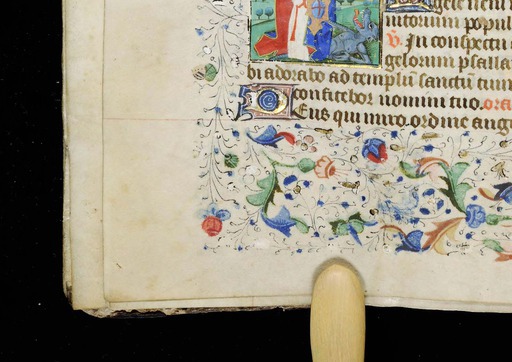 intorum popul
V. In conspectu
gelorum psalla
bi adorabo ad templū sanctū tuū
confitebor nomini tuo. ora
Deus qui miro ordine ange